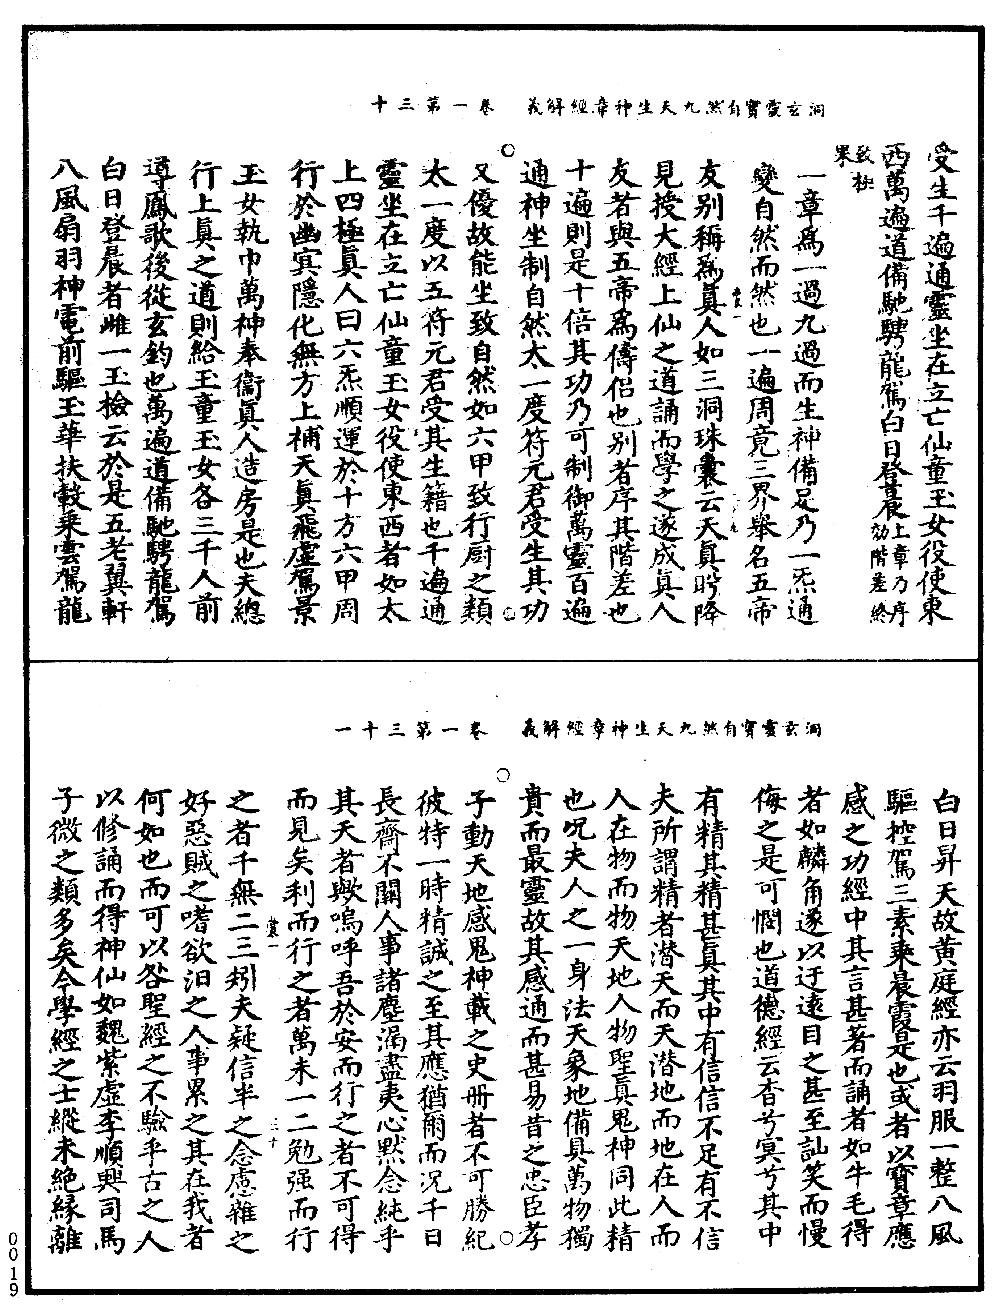 洞玄靈寶自然九天生神章經解義　卷一第三十
受生千遍通靈坐在立亡仙童玉女役使東
西萬遍道備馳騁龍駕白日登晨上章乃序功階差終
致極果
一章爲一過九過而生神備足乃一炁通
變自然而然也一遍周竟三界舉名五帝
友别稱爲眞人如三洞珠囊云天眞時降
見授大經上仙之道誦而學之遂成眞人
友若與五帝爲儔侶也别者序其階差也
十遍則是十倍其功乃可制御萬靈百遍
通神坐制自然太一度符元君受生其功
又優故能坐致自然如六甲致行厨之類
太一度以五符元君受其生籍也千遍通
靈坐在立亡仙童玉女役使東西者如太
上四極眞人曰六炁順運於十方六甲周
行於幽冥隱化無方上補天眞飛虛駕景
玉女執巾萬神奉衞眞人造房是也夫總
行上眞之道則給玉童玉女各三千人前
導鳳歌後從玄鈞也萬遍道備馳騁龍駕
白日登晨者雌一玉檢云於是五老翼軒
八風扇羽神電前驅玉華扶轂乘雲駕龍
洞玄靈寶自然九天生神章經解義　卷一第三十一
白日昇天故黃庭經亦云羽服一整八風
驅控駕三素乘晨霞是也或者以寶章應
感之功經中其言甚著而誦者如牛毛得
者如麟角遂以迂遠目之甚至訕笑而慢
侮之是可憫也道德經云杳兮冥兮其中
有精其精甚眞其中有信信不足有不信
夫所謂精者潜天而天潜地而地在人而
人在物而物天地人物聖眞鬼神同此精
也况夫人之一身法天象地備具萬物獨
貴而最靈故其感通而甚易昔之忠臣孝
子動天地感鬼神載之史册者不可勝紀
彼特一時精誠之至其應猶爾而况千日
長齋不關人事諸塵漏盡夷心默念純乎
其天者歟嗚呼吾於安而行之者不可得
而見矣利而行之者萬未一二勉强而行
之者千無二三矧夫疑信半之念慮雜之
好惡賊之嗜欲汨之人事累之其在我者
何如也而可以咎聖經之不驗乎古之人
以修誦而得神仙如魏紫虛李順興司馬
子微之類多矣今學經之士縱未絶緣離
0019